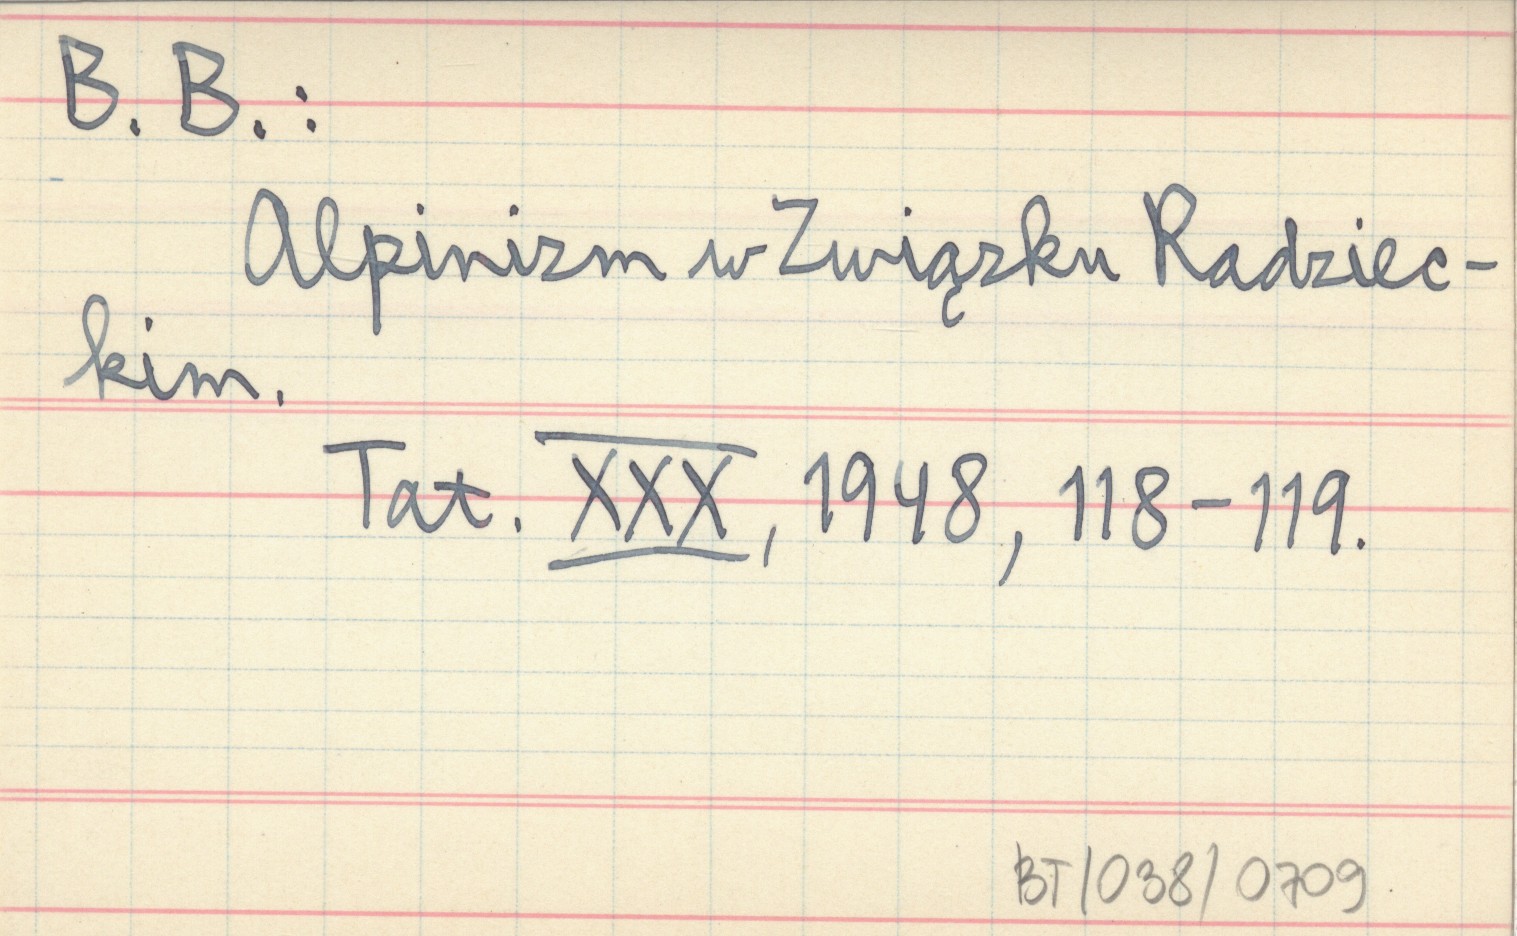 B. B.:
Alpinizm w Związku Radziec-
kim.
Tat. XXX, 1948, 118-119.
BT/038/0709